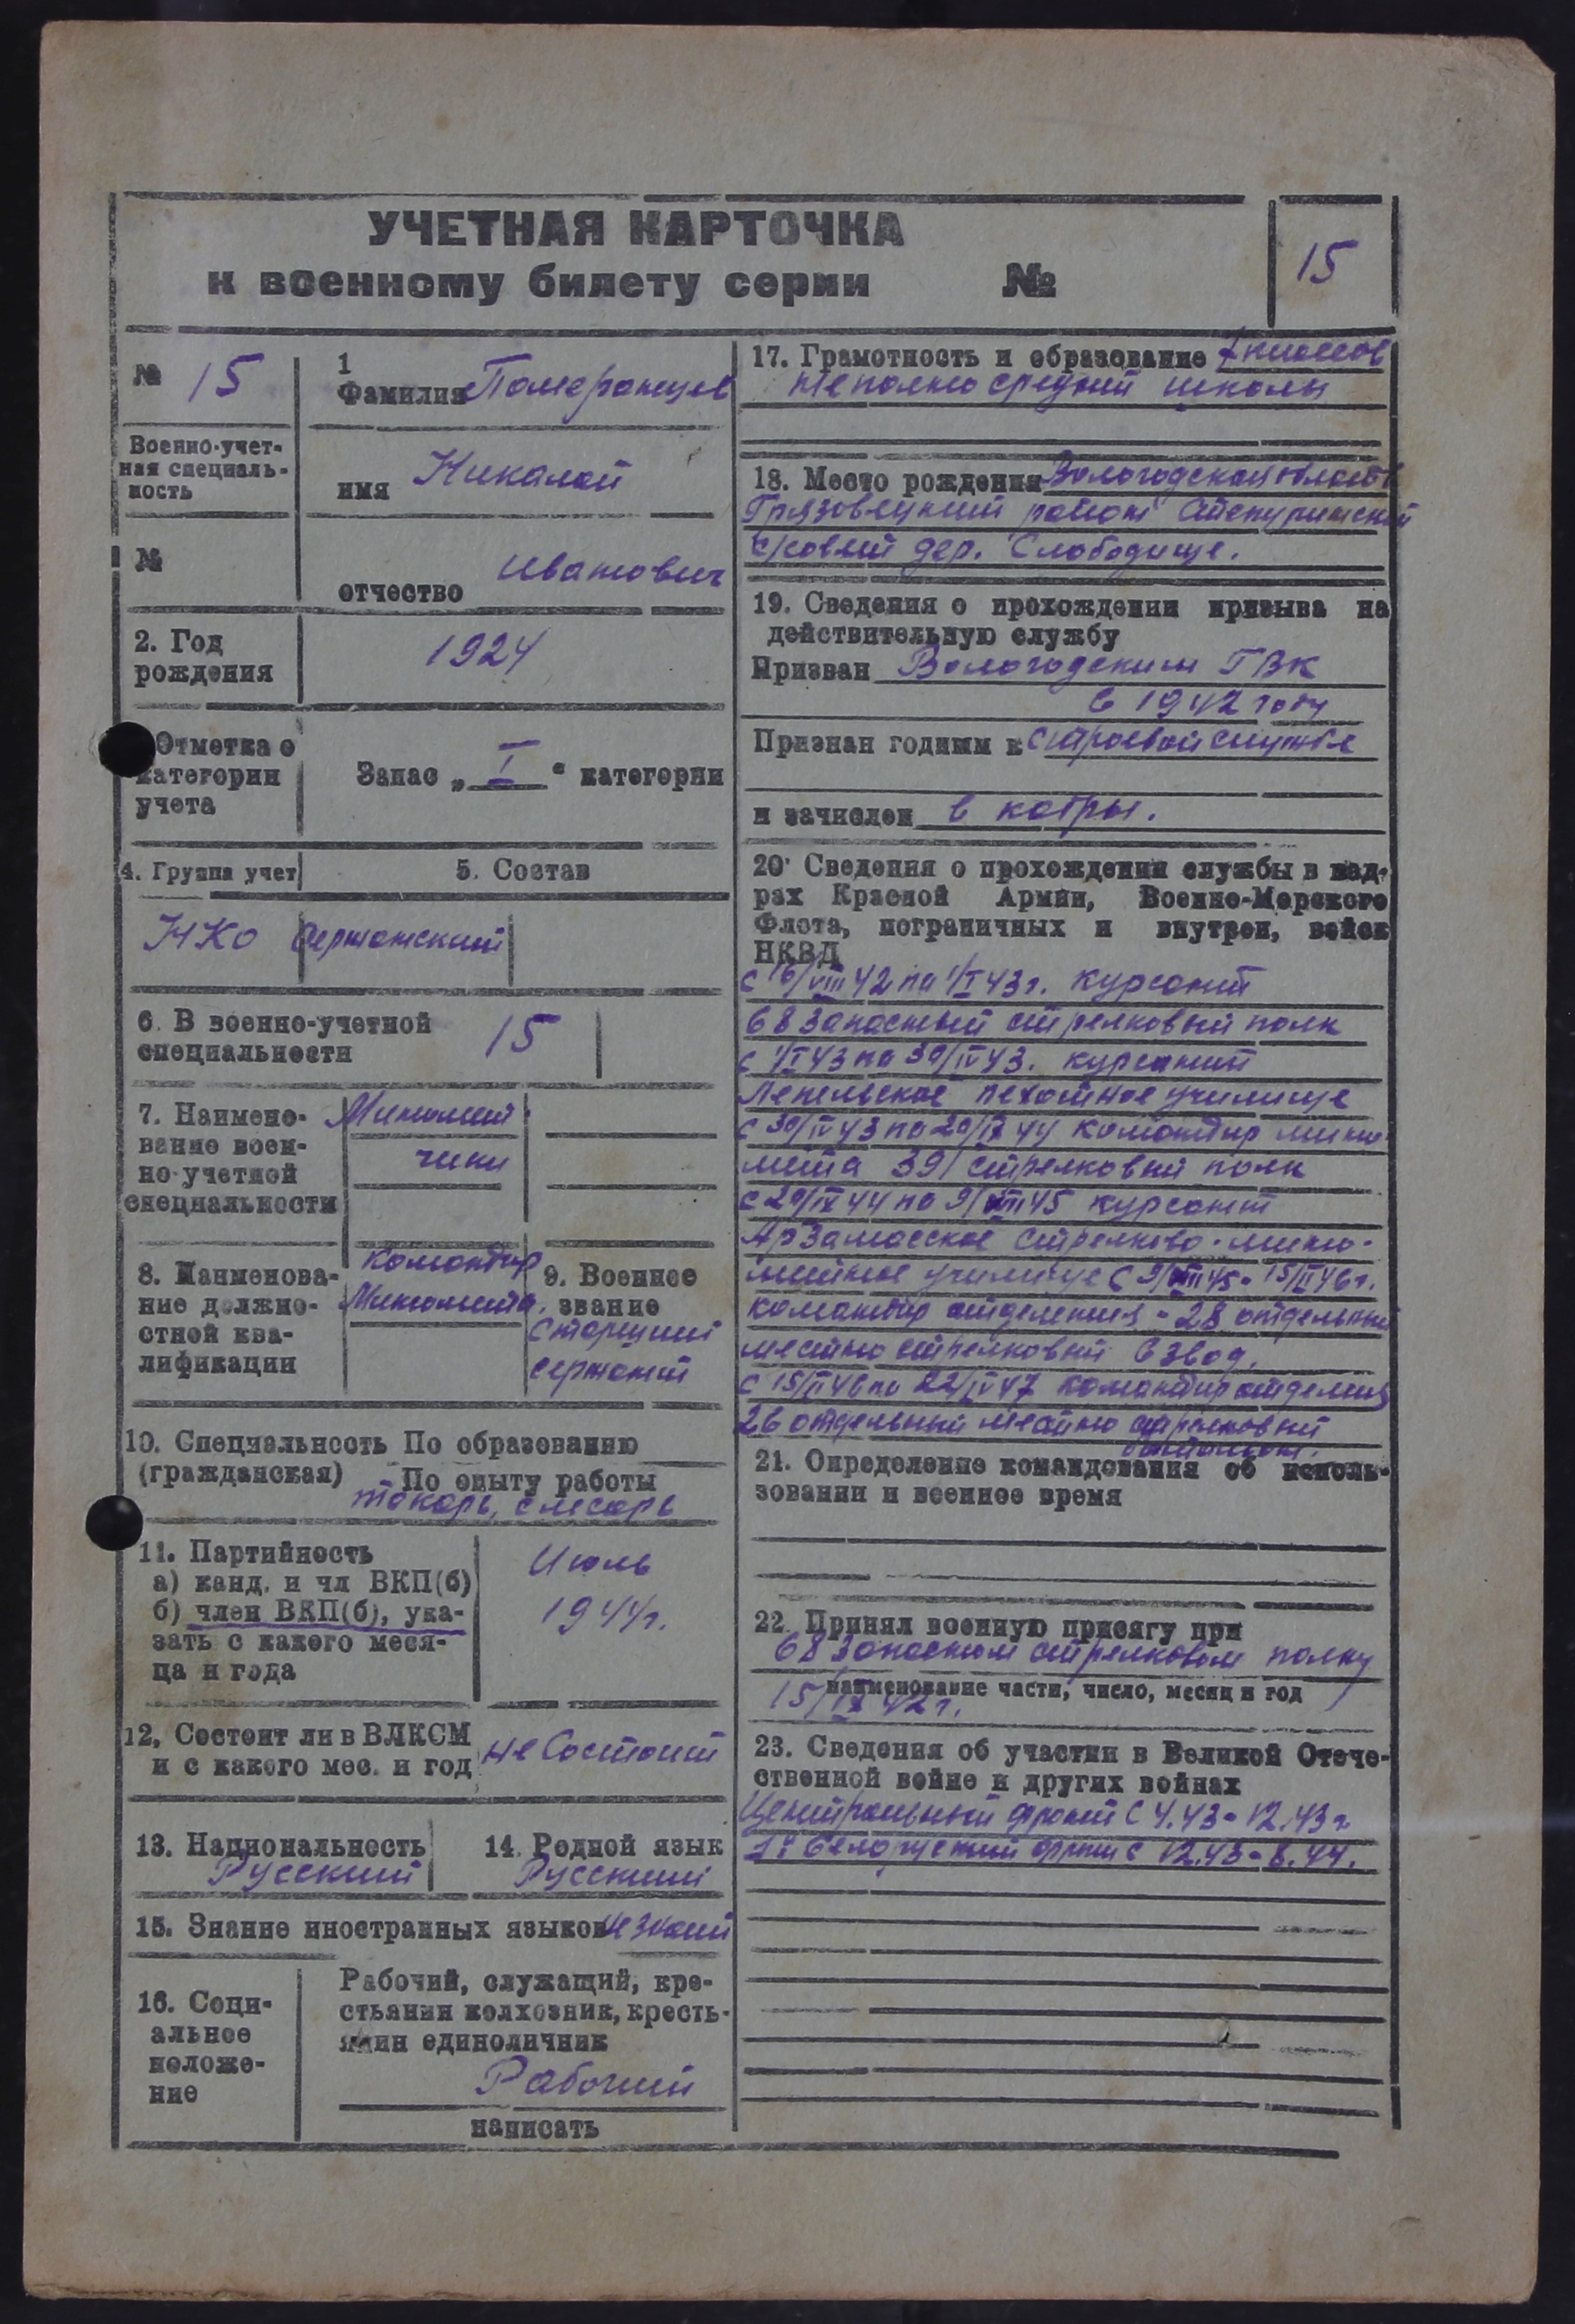 УЧЕТНАЯ КАРТОЧКА
к военному билету серии №
15
№ 15
1
Фамилия Померанцев
Военно-учет-
ная специаль-
ность
имя Николай
№
отчество Иванович
2. Год
рождения
1924
Отметка о
категории
учета
Запас „ I “ категории
4. Группа учет
5. Состав
НКО Сержанский
6. В военно-учетной
специальности
15
7. Наимено-
вание воен-
но-учетной
специальности
Миномет
чики
8. Наименова-
ние должно-
стной ква-
лификации
Командир
Миномета.
9. Военное
звание
Старший
сержант
10. Специальность По образованию
(гражданская) По опыту работы
токарь, слесарь
11. Партийность
а) канд. и чл ВКП(б)
б) член ВКП(б), ука-
зать с какого меся-
ца и года
Июль
1944г.
12. Состоит ли в ВЛКСМ
и с какого мес. и год
не Состоит
13. Национальность
Русский
14. Родной язык
Русский
15. Знание иностранных языков не знает
16. Соци-
альное
положе-
ние
Рабочий, служащий, кре-
стьянин колхозник, кресть-
янин единоличник
Рабочий
написать
17. Грамотность и образование 7 классов
неполно средний школы
18. Место рождения Вологодская область
Грязовецкий район
с/совет дер. Слободище.
19. Сведения о прохождении призыва на
действительную службу
Призван Вологодским ГВК
в 1942 году
Признан годным к строевой службе
и зачислен в кадры.
20. Сведения о прохождении службы в кад-
рах Красной Армии, Военно-Морского
Флота, пограничных и внутрен, войск
НКВД
с 16/VIII 42 по 1/I 43г. курсант
68 Запасный стрелковый полк
с 1/I 43 по 30/IV 43. курсант
Лепельское пехотное училище
с 30/IV 43 по 20/IX 44 командир мино
мета 39 стрелковый полк
с 20/IX 44 по 9/VIII 45 курсант
Арзамасское стрелково-мино-
метное училище с 9/VIII 45 - 15/II 46г.
командир отделения - 28 отдельный
местно стрелковый взвод.
с 15/II 46 по 22/IV 47 командир отделения
26 отдельный местно стрелковый
батальон.
21. Определение командования об исполь-
зовании и военное время
22. Принял военную присягу при
68 Запасном стрелковом полку
наименование части, число, месяц и год
15/IX 42г.
23. Сведения об участии в Великой Отече-
ственной войне и других войнах
Центральный фронт с 4.43 - 12.43г
1й белоруский фронт с 12.43 - 8.44.